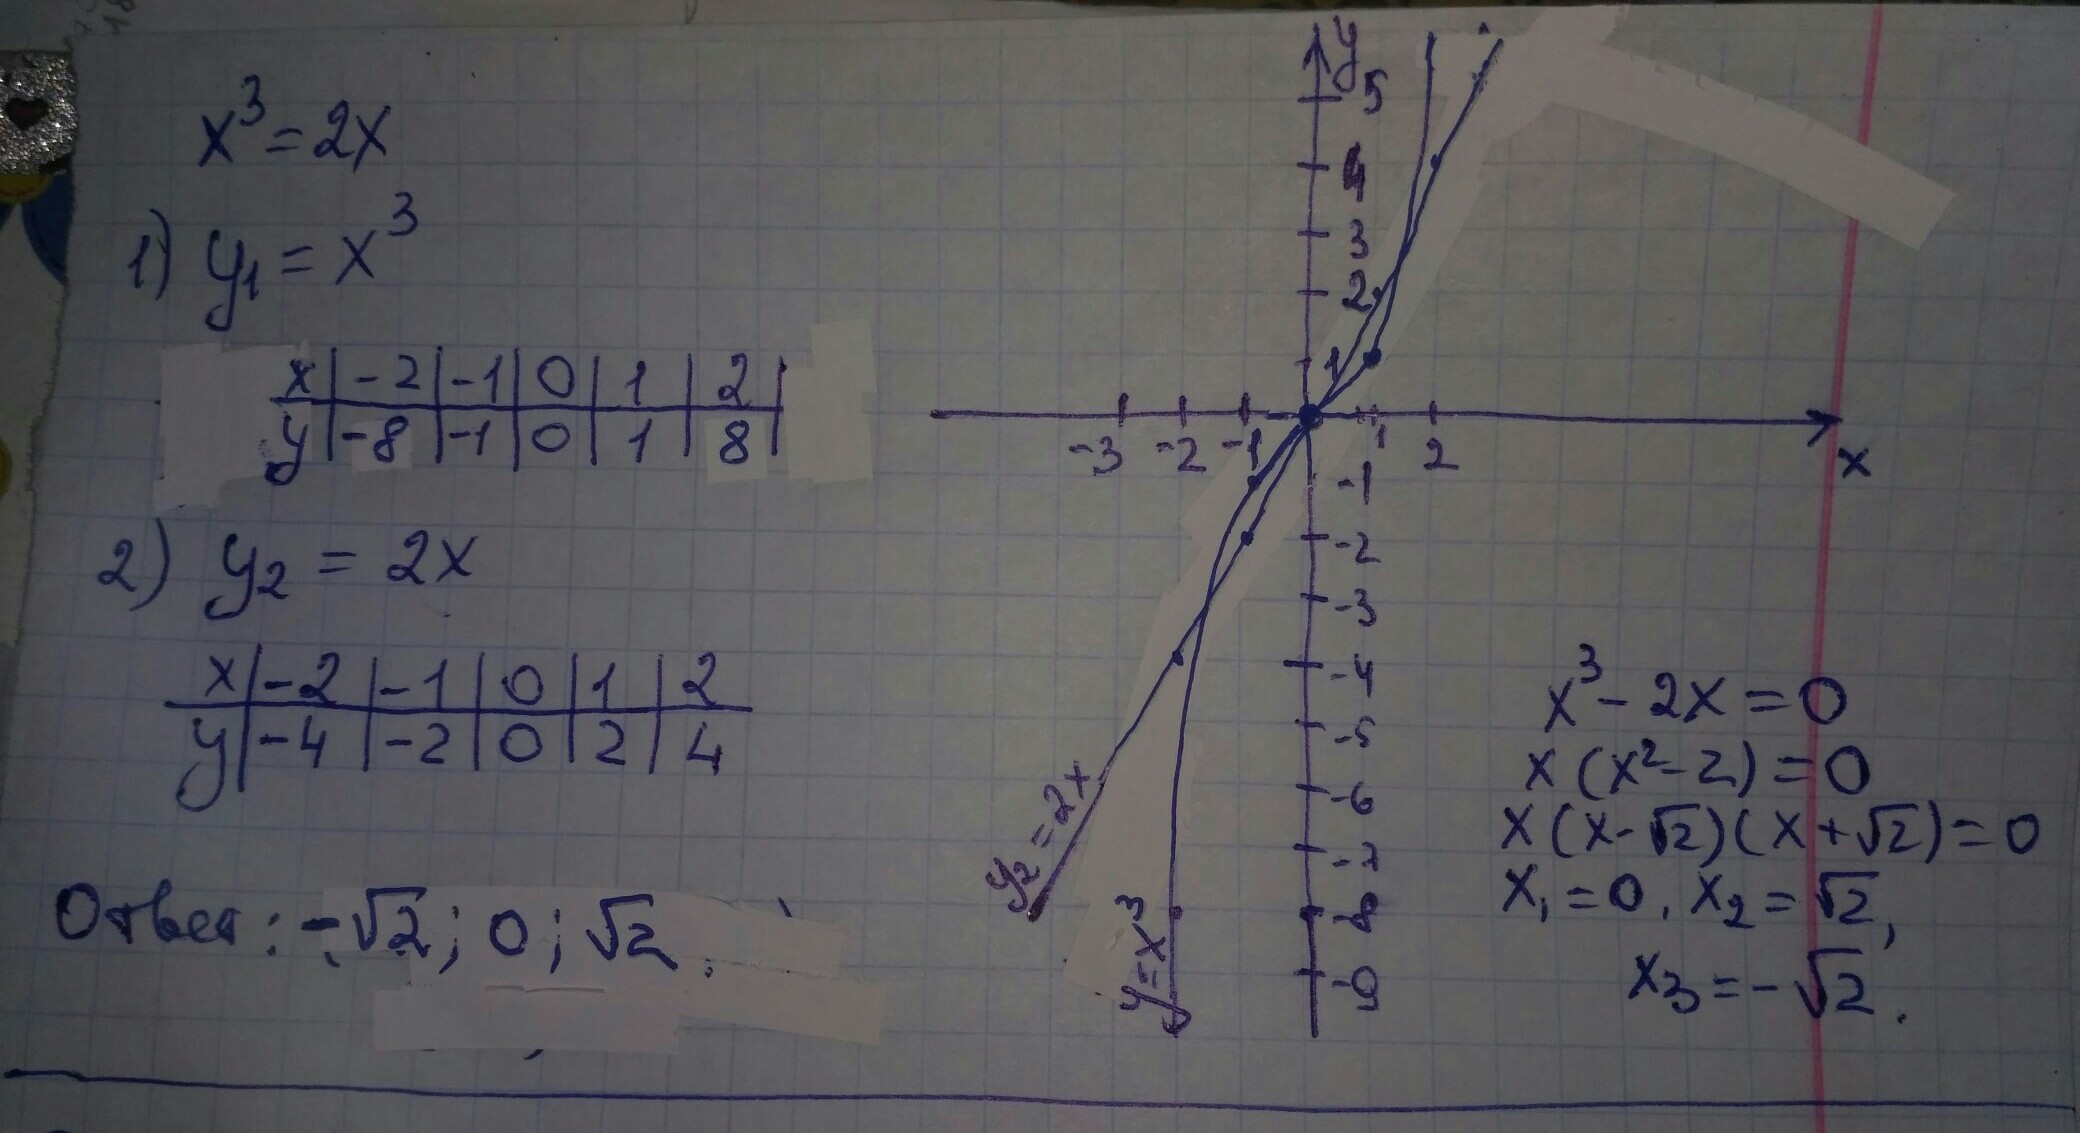 x³ = 2x
1) y₁ = x³
x | -2 | -1 | 0 | 1 | 2 |
y | -8 | -1 | 0 | 1 | 8 |
2) y₂ = 2x
x | -2 | -1 | 0 | 1 | 2
y | -4 | -2 | 0 | 2 | 4
Ответ: -√2; 0; √2.
y
5
4
3
2
1
-3 -2 -1 1 2
x
-1
-2
-3
-4
-5
-6
-7
-8
-9
y₂ = 2x
y = x³
x³ - 2x = 0
x (x² - 2) = 0
x (x - √2) (x + √2) = 0
x₁ = 0, x₂ = √2,
x₃ = - √2.